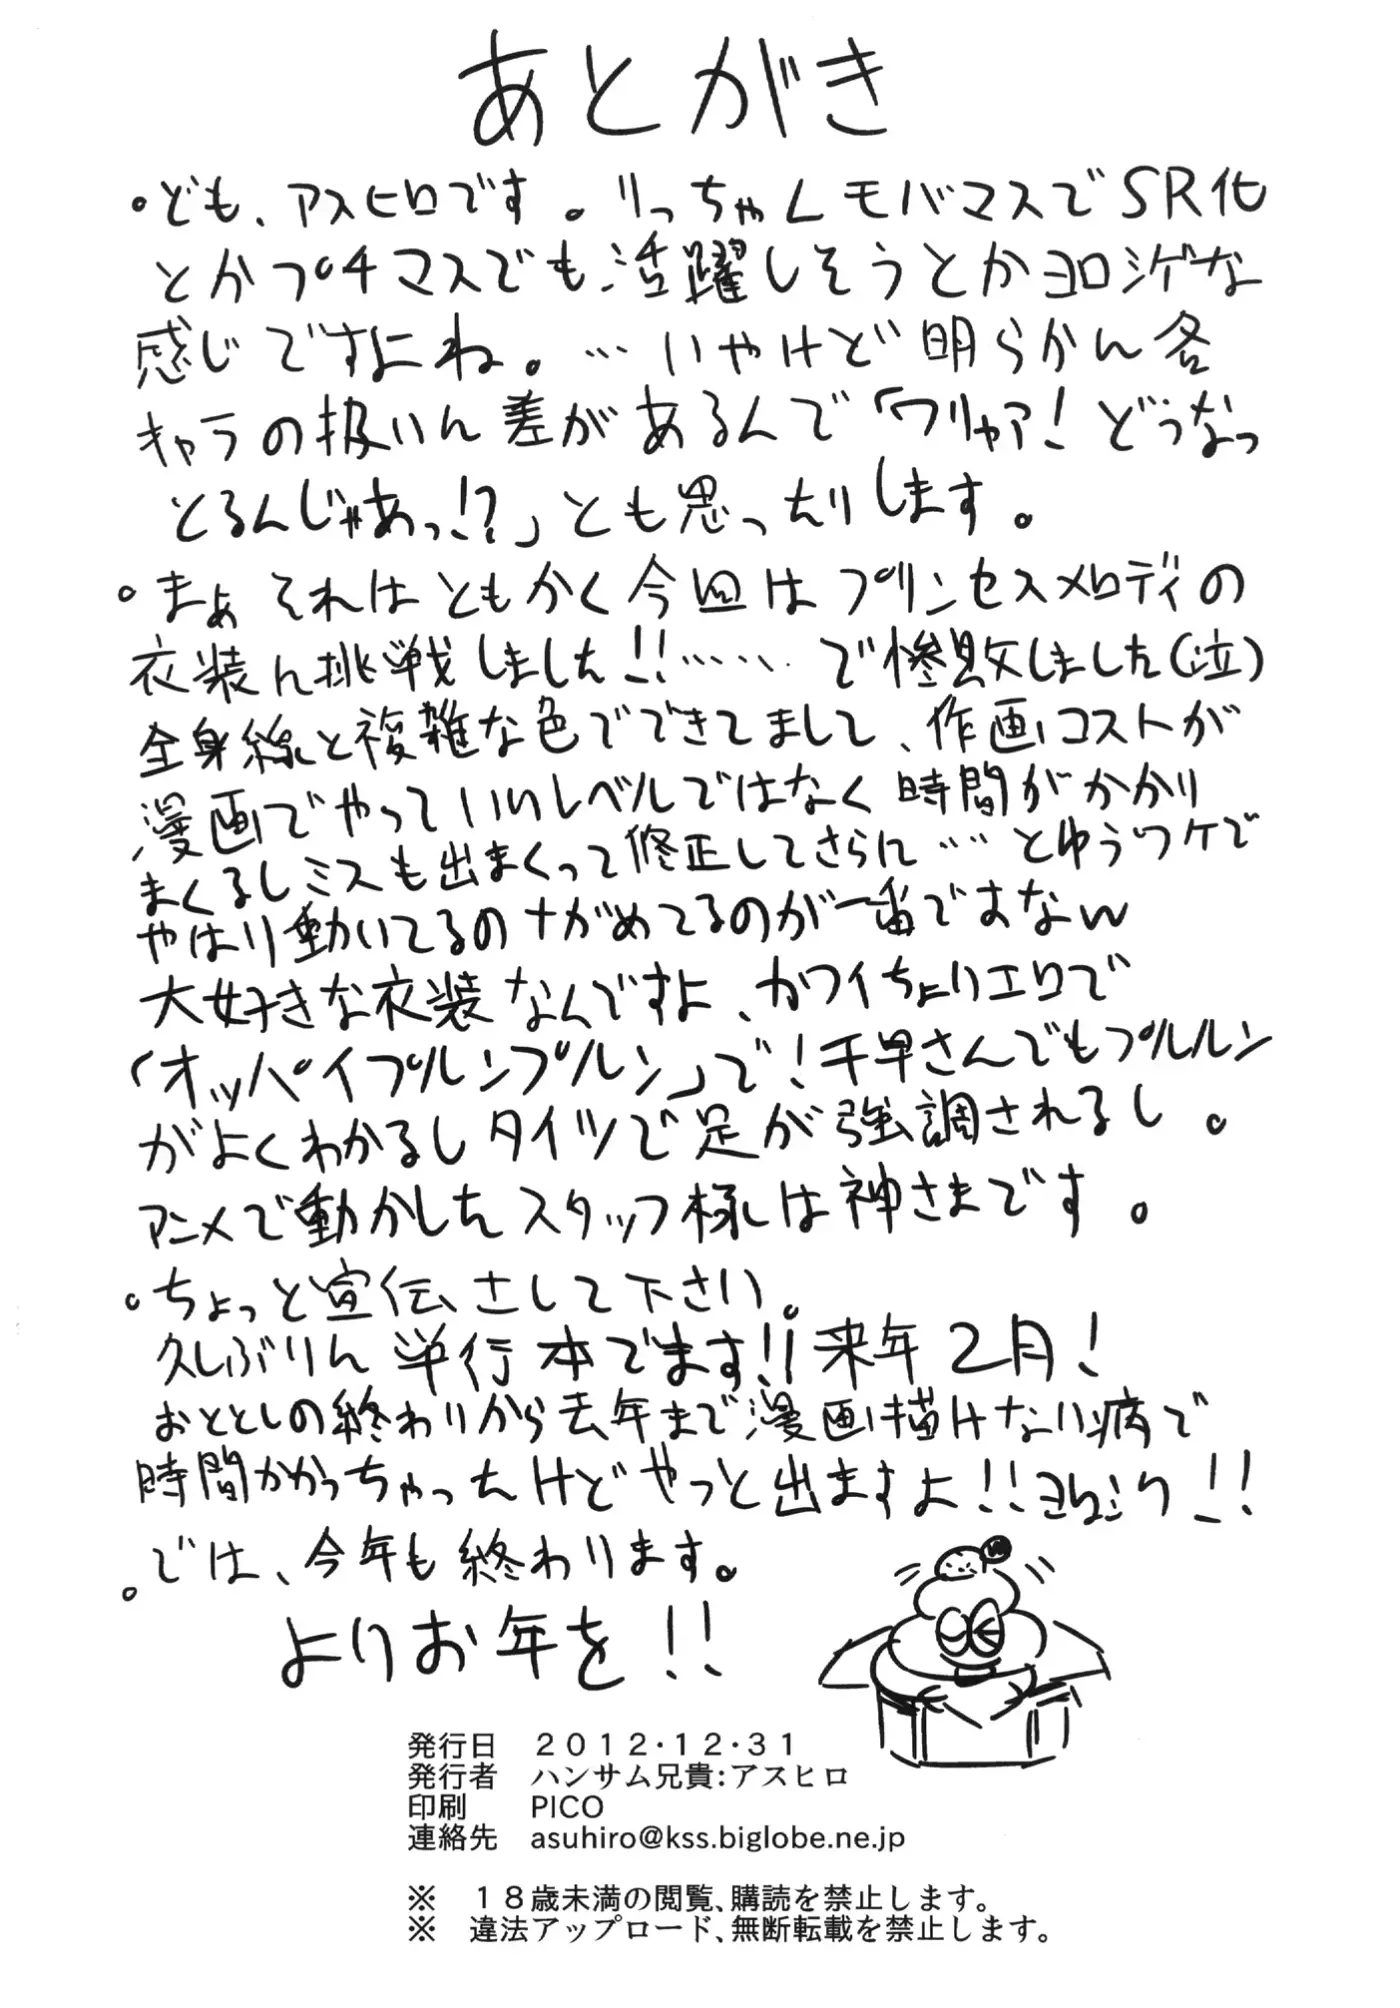 あとがき
・ども、アスヒロです。りっちゃんモバマスでSR化
とかプチマスでも活躍しそうとかヨロシゲな
感じですよね。…いやけど明らかん各
キャラの扱いん差があるんで「ワリャア!どうなっ
とるんじゃあっ!?」とも思ったりします。
・まぁそれはともかく今回はプリンセスメロディの
衣装ん挑戦しました!!……で惨敗しました(泣)
全身線と複雑な色でできてまして、作画コストが
漫画でやっていいレベルではなく時間がかかり
まくるしミスも出まくって修正してさらに…とゆうワケで
やはり動いてるのナがめてるのが一番ですなw
大好きな衣装なんですよ、カワイちょりエロで
「オッパイプルンプルン」で!千早さんでもプルルン
がよくわかるしタイツで足が強調されるし。
アニメで動かしたスタッフ様は神さまです。
・ちょっと宣伝さして下さい。
久しぶりん単行本でます!!来年2月!
おととしの終わりから去年まで漫画描けない病で
時間かかっちゃったけどやっと出ますよ!!ヨロシク!!
。では、今年も終わります。
よりお年を!!
発行日 2012・12・31
発行者 ハンサム兄貴:アスヒロ
印刷 PICO
連絡先 asuhiro@kss.biglobe.ne.jp
※ 18歳未満の閲覧、購読を禁止します。
※ 違法アップロード、無断転載を禁止します。